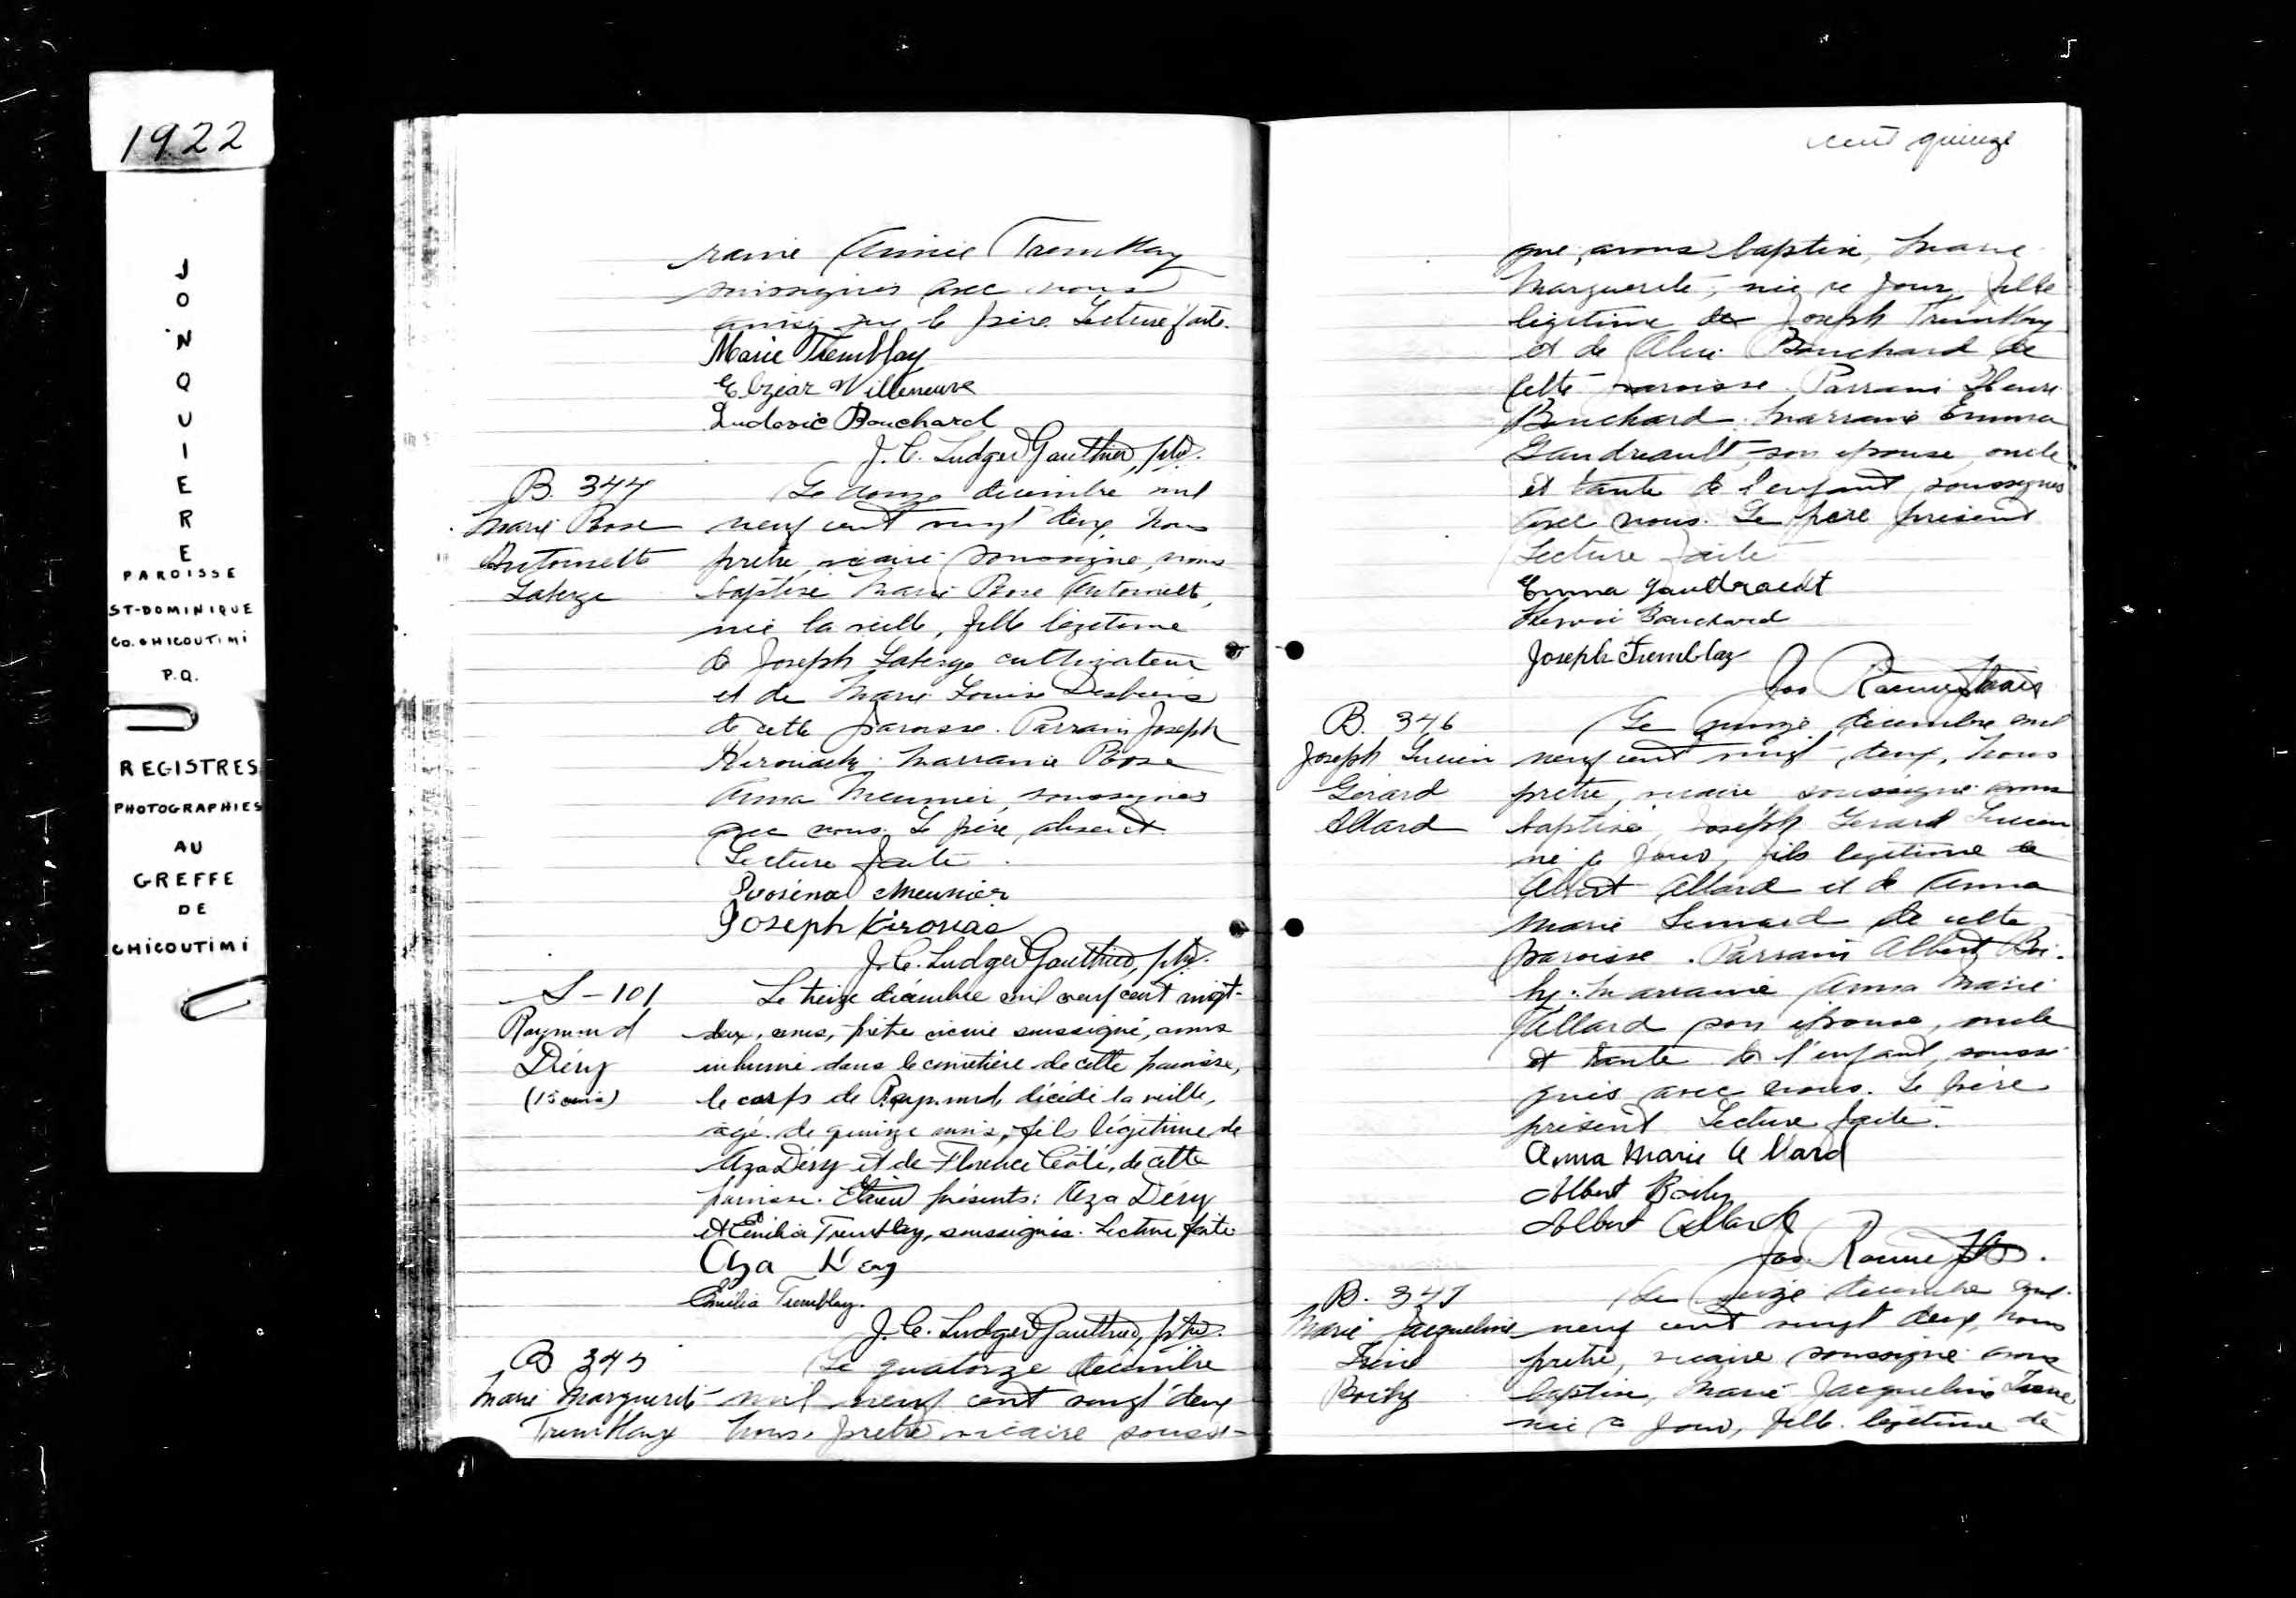 1922
JONQUIERE
PAROISSE
ST-DOMINIQUE
CO. CHICOUTIMI
P.Q.
REGISTRES
PHOTOGRAPHIES
AU
GREFFE
DE
CHICOUTIMI
raine Aimée Tremblay
soussignés avec nous
que le père. Lecture faite.
Marie Tremblay
Elzéar Villeneuve
Ludovic Bouchard
J. C. Ludger Gauthier, ptre.
B. 344
Marie Rose
Antoinette
Laberge
Le décembre mil
neuf cent vingt deux, nous
prêtre, vicaire soussigné, avons
baptisé Marie Rose Antoinette,
née la veille, fille légitime
de Joseph Laberge cultivateur
et de Marie Louise Desbiens
de cette paroisse. Parrain Joseph
Kerouack. Marraine Rose
Anna Meunier, soussignés
avec nous. Le père absent
Lecture faite.
Roséna Meunier
Joseph Kirouac
J. C. Ludger Gauthier, ptre.
S-101
Raymond
Déry
(15 mois)
Le treize décembre mil neuf cent vingt-
deux, nous, prêtre vicaire soussigné, avons
inhumé dans le cimetière de cette paroisse,
le corps de Raymond, décédé la veille,
âgé de quinze mois, fils légitime de
Aza Déry et de Florence Côté, de cette
paroisse. Etaient présents: Aza Déry
et Emilia Tremblay, soussignés. Lecture faite.
Aza Dery
Emilia Tremblay.
J. C. Ludger Gauthier, ptre.
B 345
Marie Marguerite
Tremblay
Le quatorze décembre
mil neuf cent vingt deux
Nous, prêtre vicaire soussi-
cent quinze
gné, avons baptisé, Marie
Marguerite, née ce jour, fille
légitime de Joseph Tremblay
et de Bouchard de
cette paroisse. Parrain Henri
Bouchard. Marraine Emma
Gaudreault, son épouse, oncle
et tante de l'enfant, soussignés
avec nous. Le père présent
Lecture faite
Emma Gaudreault
Henri Bouchard
Joseph Tremblay
Jos
B. 346
Joseph Lucien
Gérard
Allard
Le quinze décembre mil
neuf cent vingt deux, nous
prêtre, vicaire soussigné avons
baptisé, Joseph Gérard Lucien
né ce jour, fils légitime de
Albert Allard et de Anna
Marie Simard de cette
paroisse. Parrain Albert Boi-
ly. Marraine Anna Marie
Allard son épouse, oncle
et tante de l'enfant, soussi
gnés avec nous. Le père
présent Lecture faite.
Anna Marie Allard
Albert Boily
Albert Allard
Jos
B. 347
Marie Jacqueline
Irène
Boily
Le seize décembre mil
neuf cent vingt deux, nous
prêtre, vicaire soussigné avons
baptisé, Marie Jacqueline Irène
née ce jour, fille légitime de